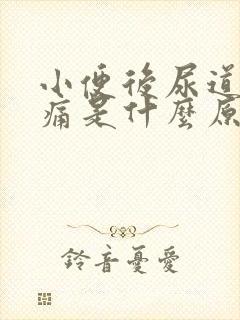 小便後尿道
痛是什麼原
鈴音憂愛